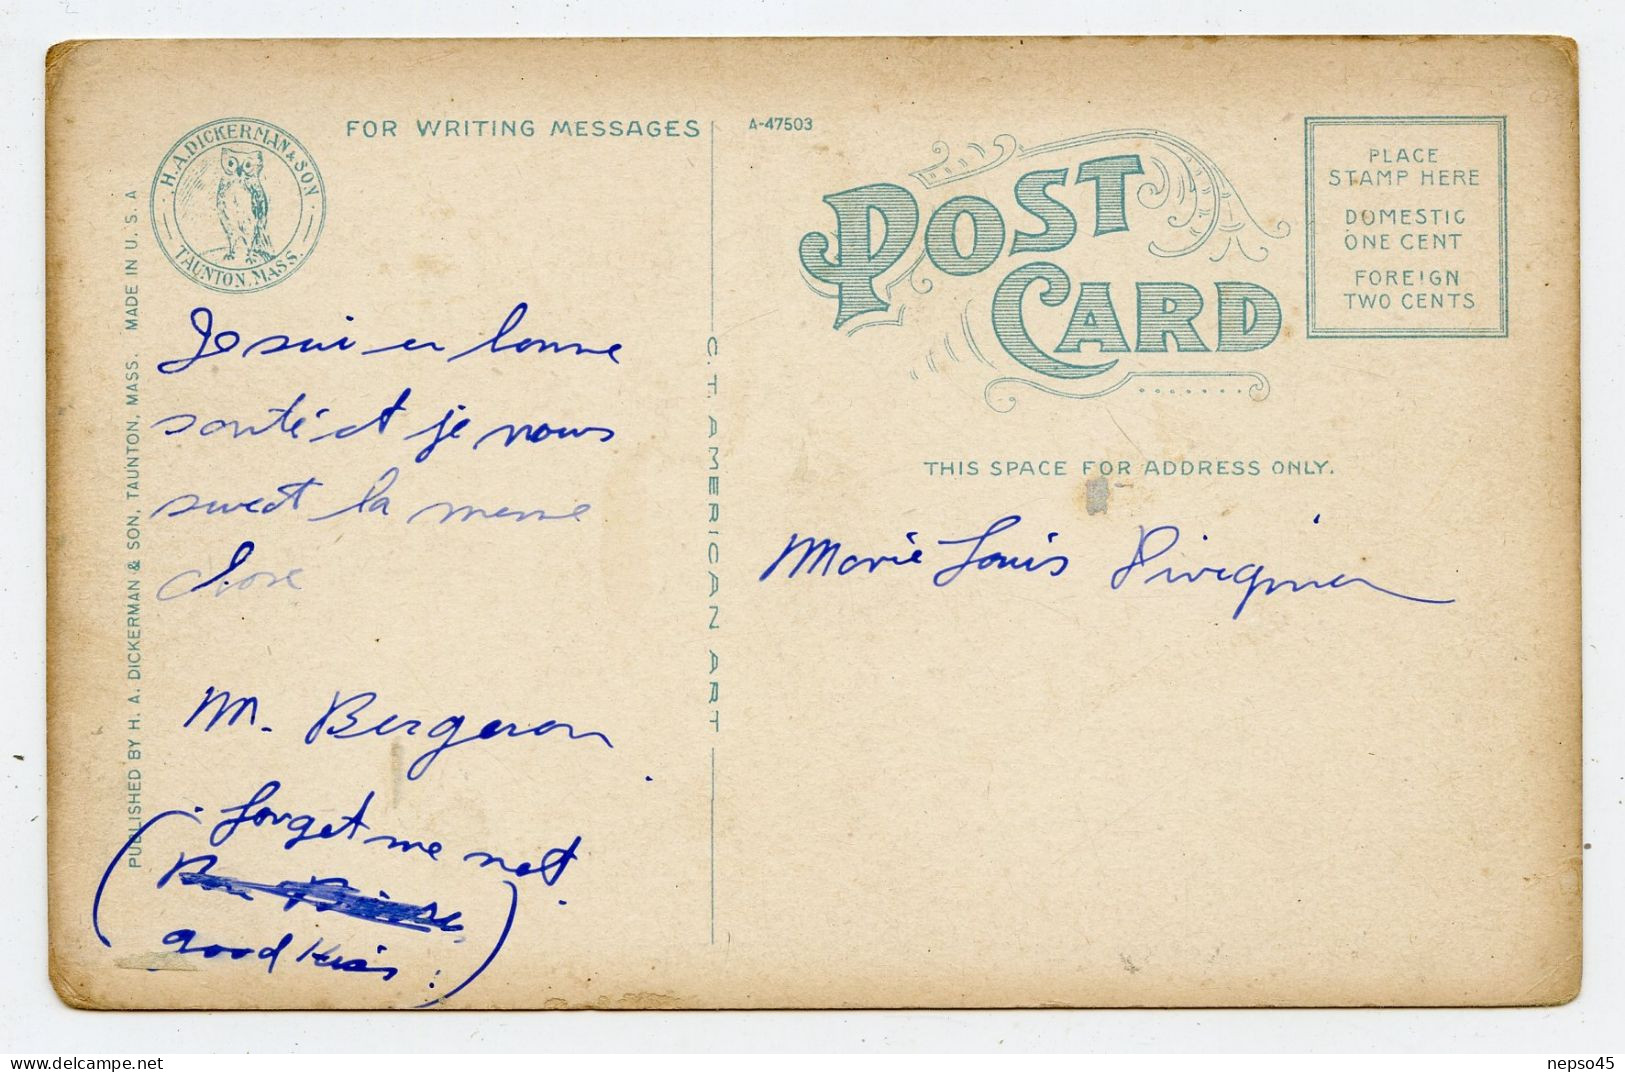 H.A. DICKERMAN & SON
TAUNTON, MASS.
FOR WRITING MESSAGES
PUBLISHED BY H. A. DICKERMAN & SON, TAUNTON, MASS. MADE IN U. S. A
Je sui en bonne
santé et je nous
la meme
chose
M. Bergeron
forget me not.
good
C. T. AMERICAN ART
A-47503
POST
CARD
PLACE
STAMP HERE
DOMESTIC
ONE CENT
FOREIGN
TWO CENTS
THIS SPACE FOR ADDRESS ONLY.
Marie Louis
delcampe.net
nepso45